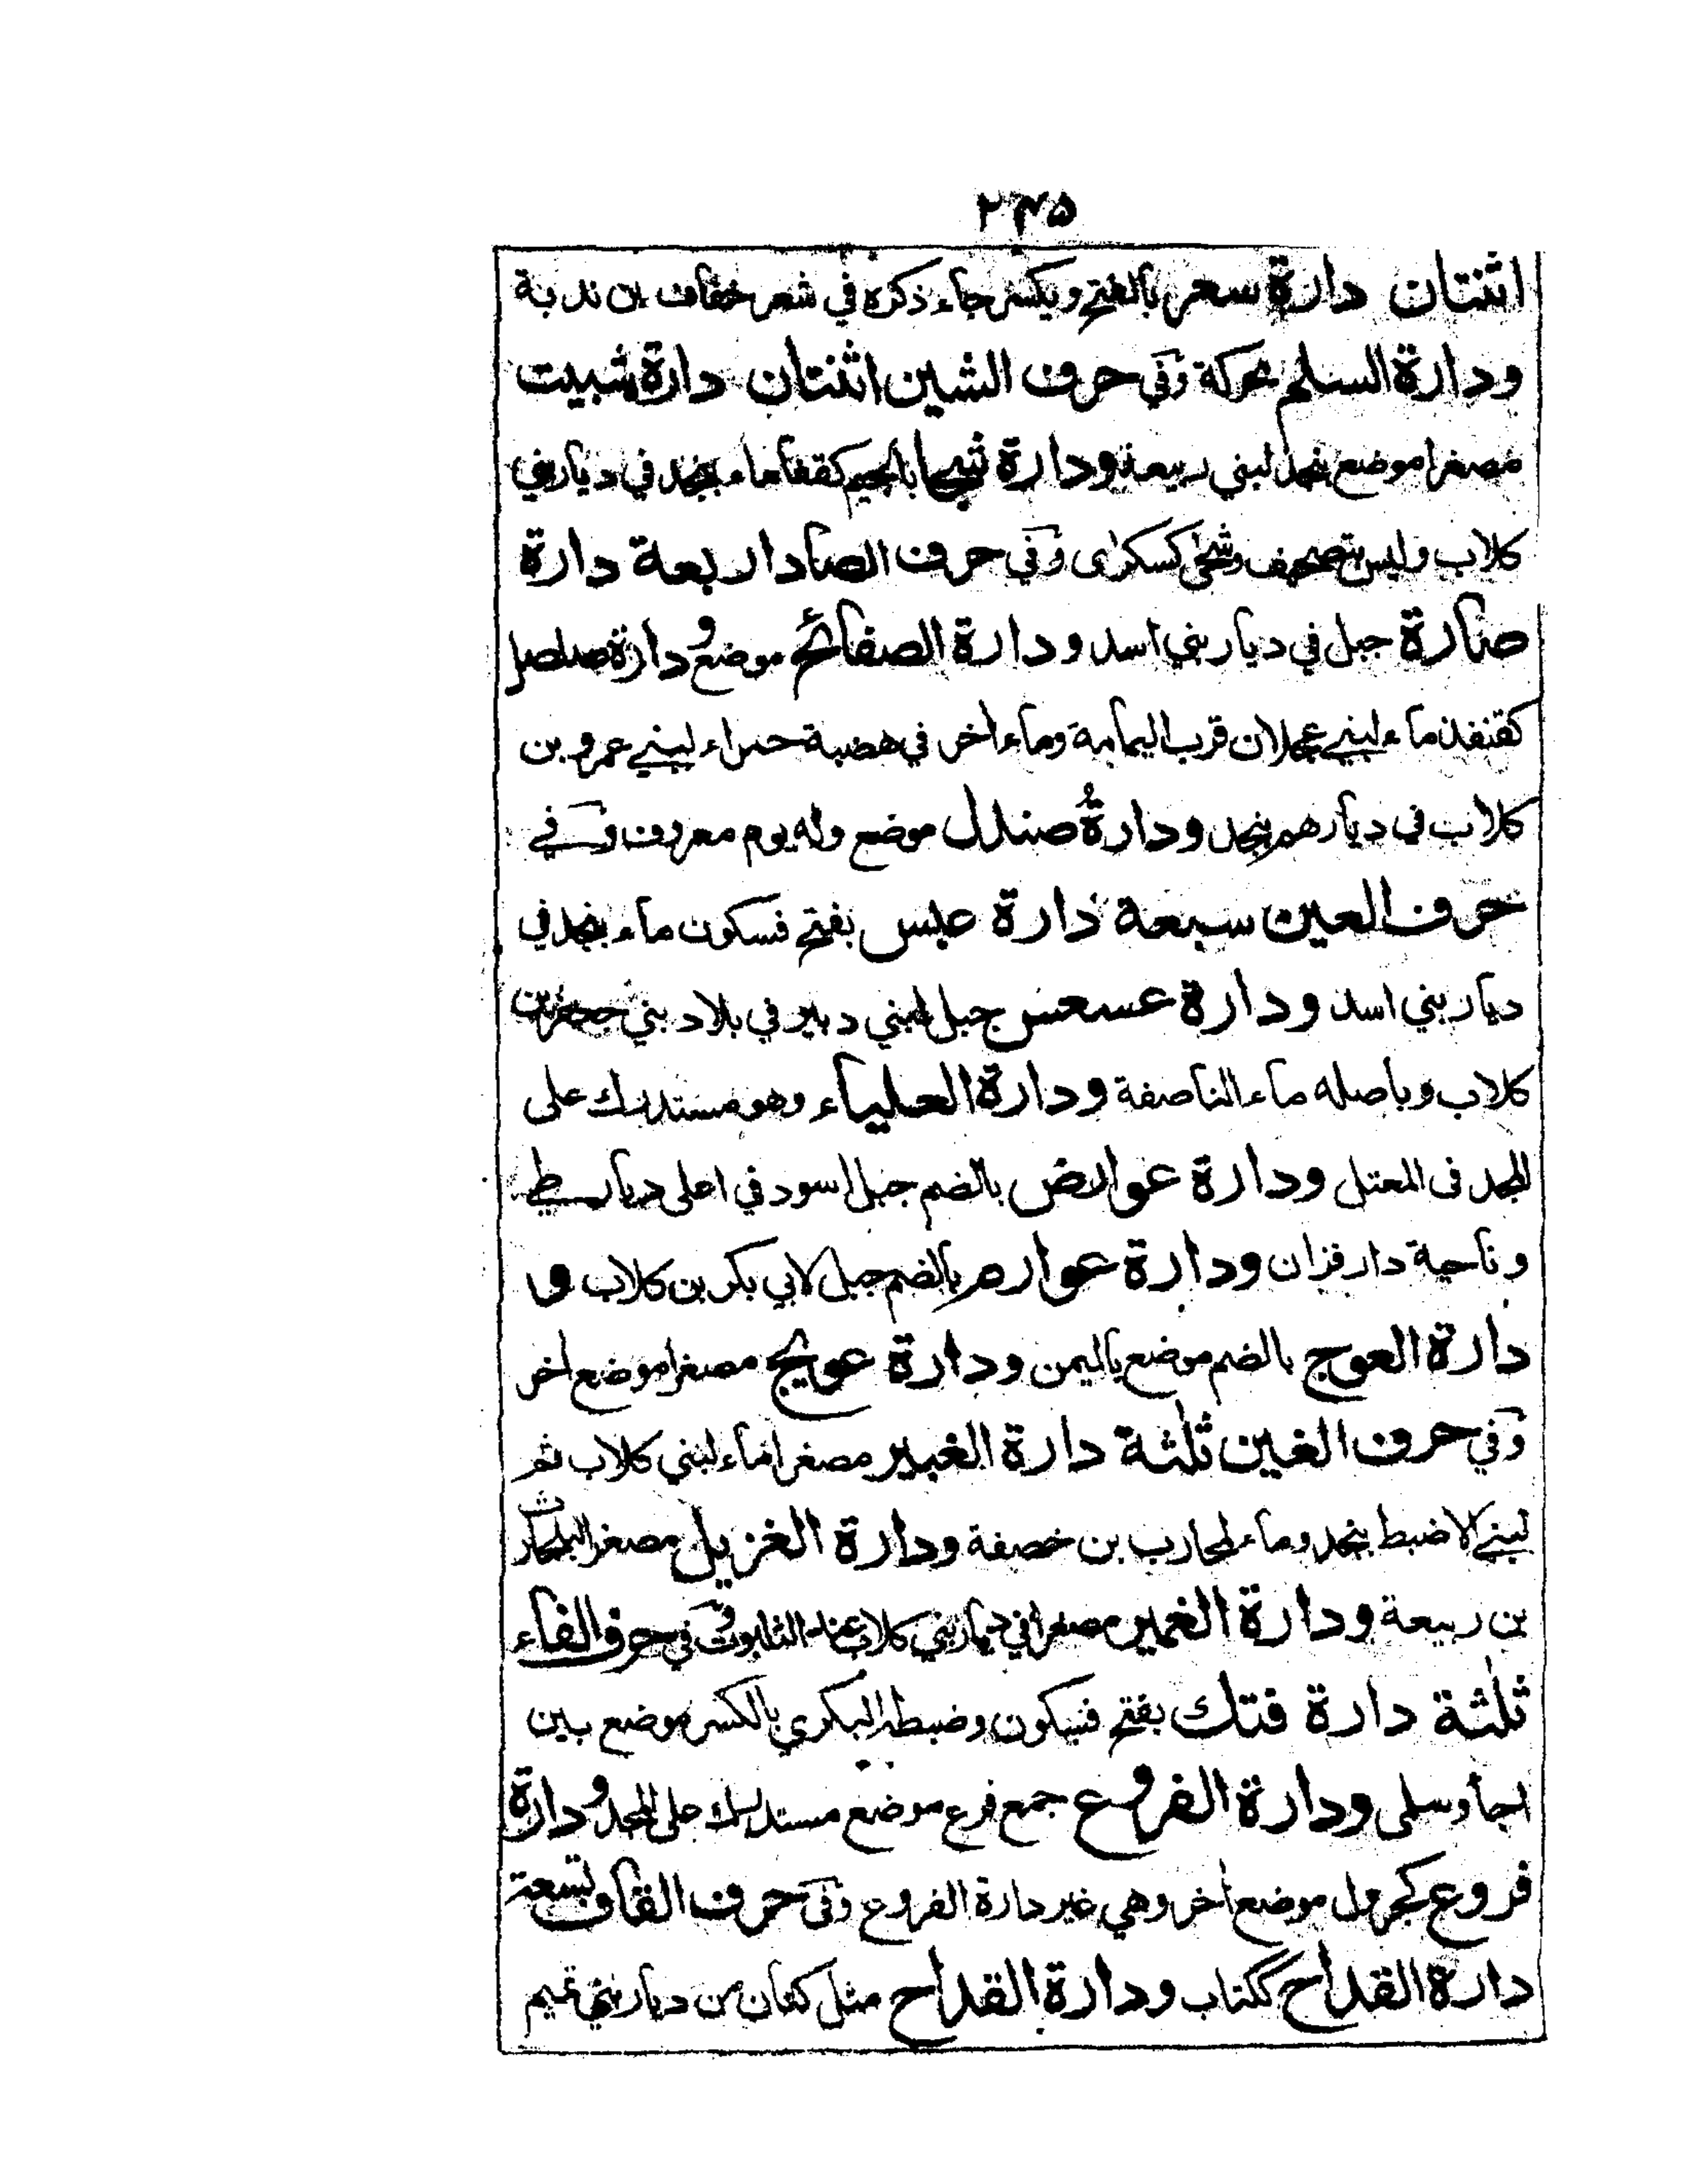 ٢٣٥
اثنتان دارة سعر بالفتح ويكسر جاء ذكره في شعر خفاف بن ندبة
ودارة السلم محركة وفي حرف الشين اثنتان دارة شبيث
مصغرا موضع بنجد لبني ربيعة ودارة شجا بالجيم كقفا ماء بنجد في ديار بني
كلاب وليس بتصحيف وشحى كسكرى وفي حرف الصاد اربعة دارة
صارة جبل في ديار بني اسد ودارة الصفائح موضع ودارة صلصل
كقنفذ ماء لبني عجلان قرب اليمامة وماء اخر في هضبة حمراء لبني عمرو بن
كلاب في ديارهم بنجد ودارةُ صندل موضع وله يوم معروف وفي
حرف العين سبعة دارة عبس بفتح فسكون ماء بنجد في
ديار بني اسد ودارة عسعس جبل لبني دبير في بلاد بني جعفر بن
كلاب وباصله ماء الناصفة ودارة العلياء وهو مستدرك على
المجد في المعتل ودارة عوارض بالضم جبل اسود في اعلى ديار طي
وناحية دار فزان ودارة عوارم بالضم جبل لابي بكر بن كلاب و
دارة العوج بالضم موضع باليمن ودارة عويج مصغرا موضع اخر
وفي حرف الغين ثلثة دارة الغبير مصغرا ماء لبني كلاب ثم
لبني الاضبط بنجد وماء لمحارب بن خصفة ودارة الغزيل مصغرا لبلحارث
بن ربيعة ودارة الغمير مصغرا في ديار بني كلاب عند الثلبوت وفي حرف الفاء
ثلثة دارة فتك بفتح فسكون وضبطه البكري بالكسر موضع بين
اجأ وسلمى ودارة الفروع جمع فرع موضع مستدرك على المجد ودارة
فروع كجرول موضع اخر وهي غير دارة الفروع وفي حرف القاف تسعة
دارة القداح ككتاب ودارة القداح مثل كتان من ديار بني تميم